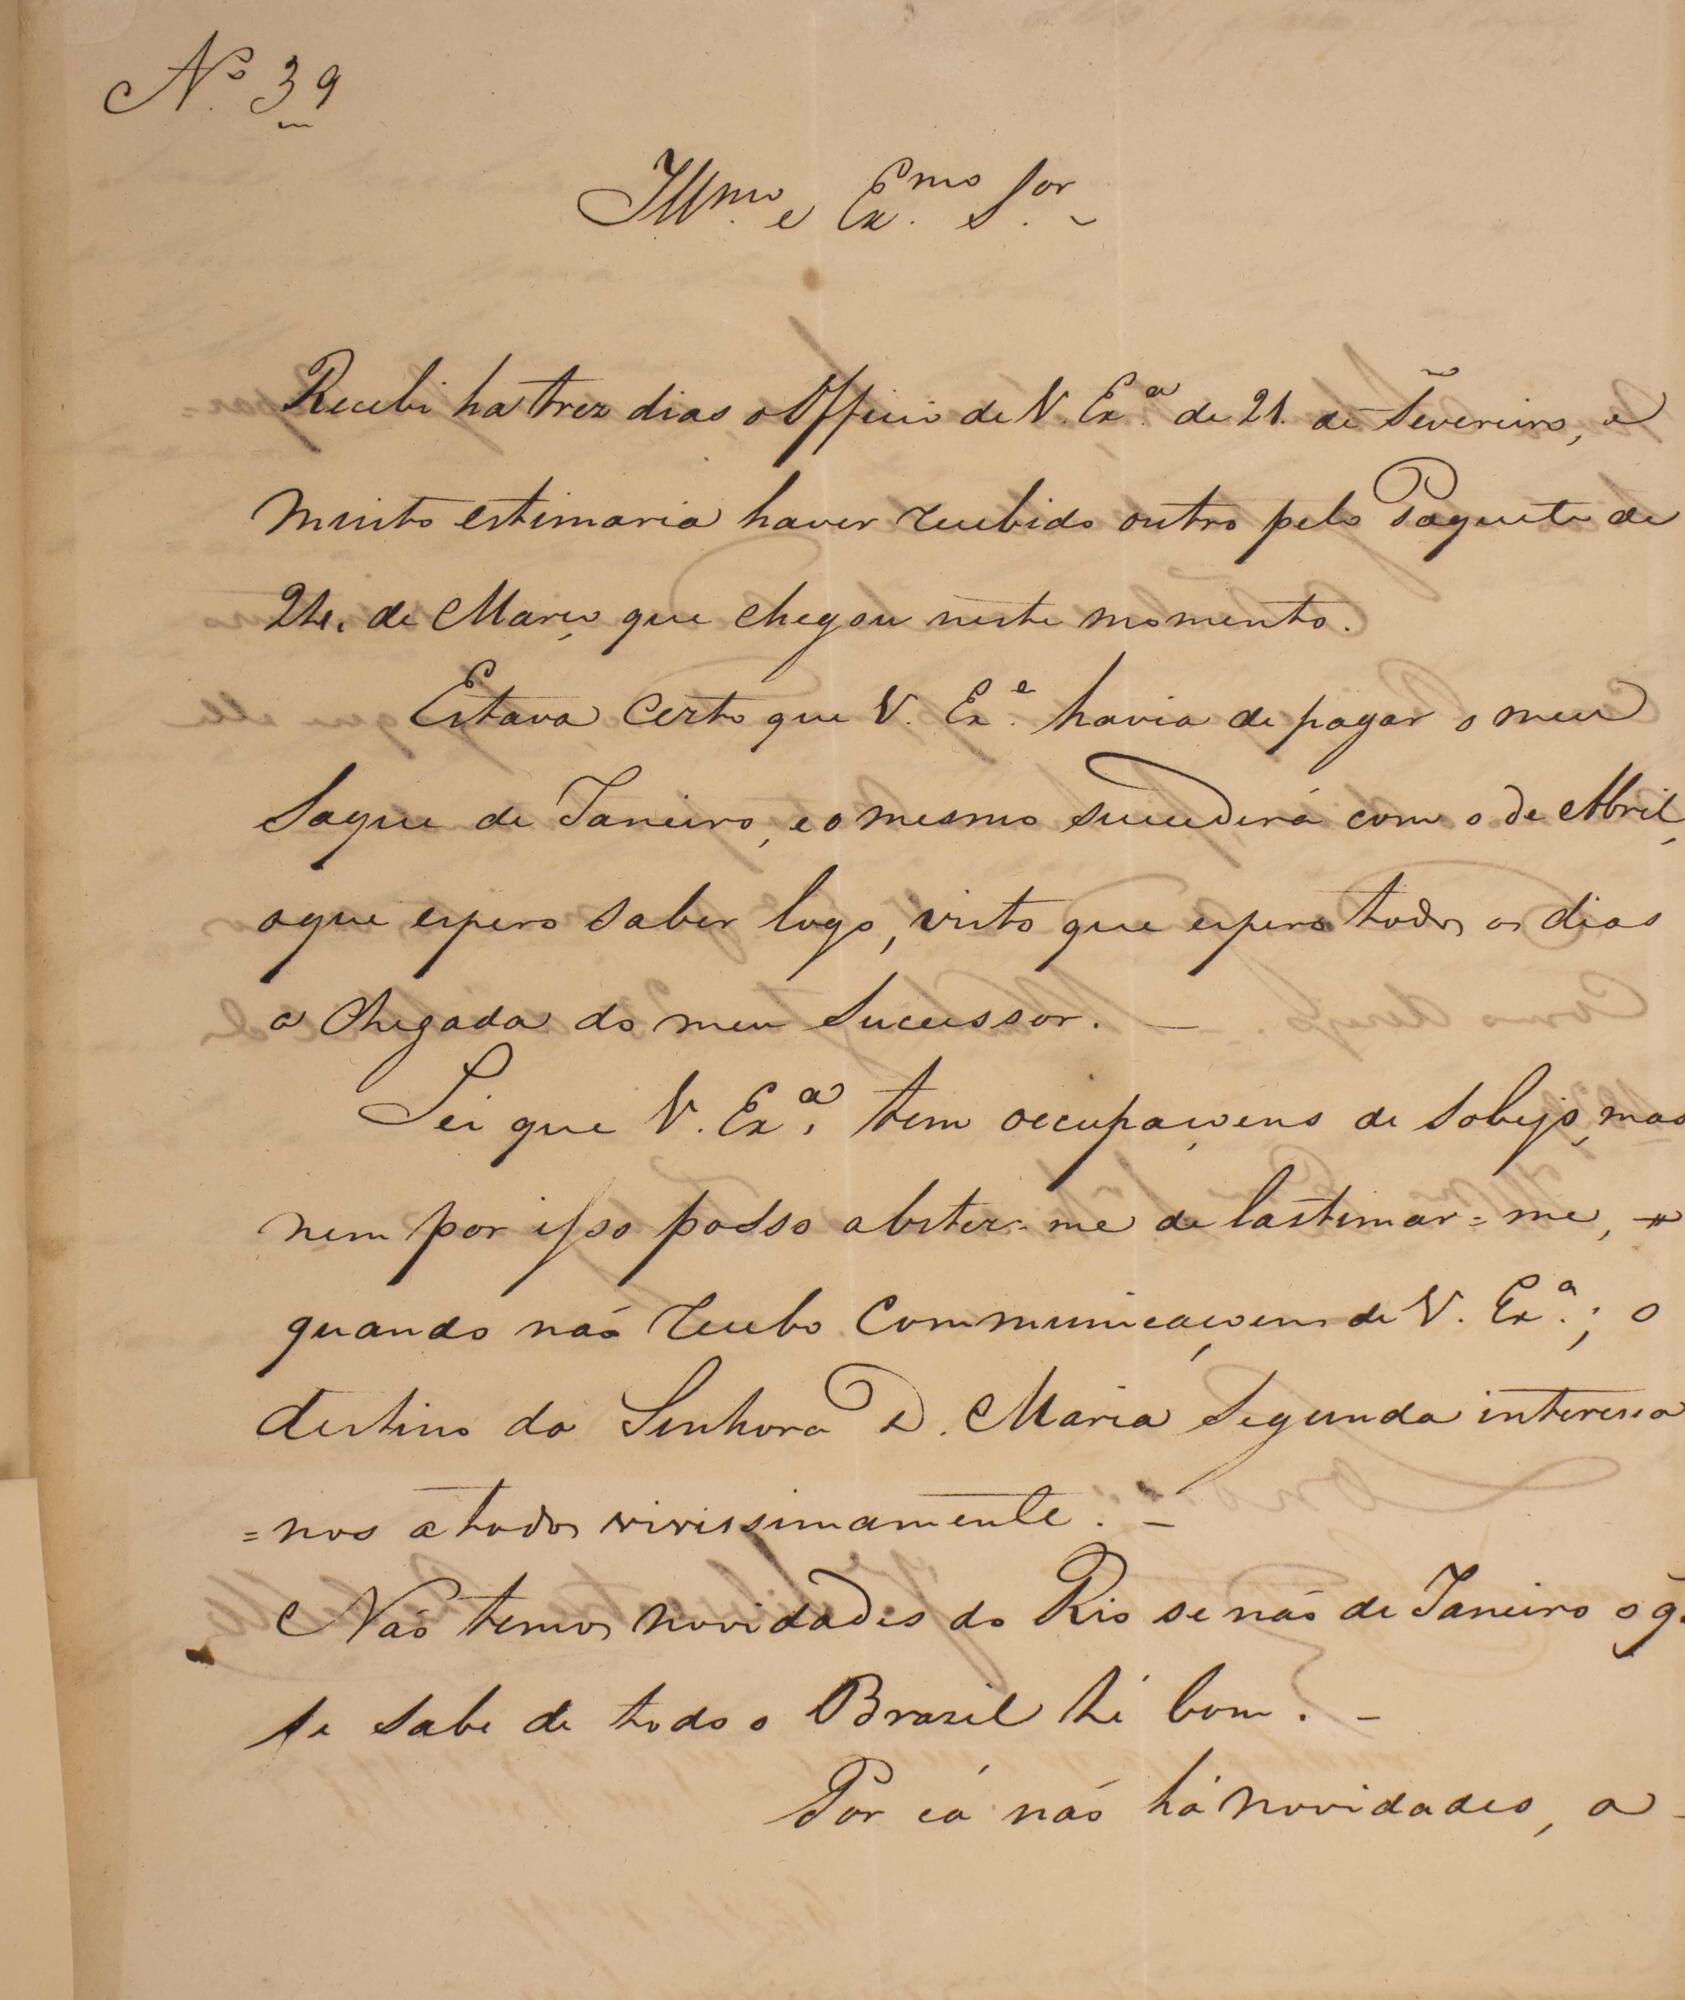 Nº 39
Illmo. e Exmo. Sor.
Recebi ha trez dias o Officio de V. Exª. de 21. de Fevereiro, e
muito estimaria haver recebido outro pelo Paquete de
24. de Março que chegou neste momento.
Estava certo que V. Exª. havia de pagar o meu
Saque de Janeiro, e o mesmo succederá com o de Abril,
oque espero saber logo, visto que espero todos os dias
a Chegada do meu Sucessor. —
Sei que V. Exª. tem occupaçoens de sobejo, mas
nem por isso posso abster-me de lastimar=me,
quando não recebo Communicaçoens de V. Exª.; o
destino da Senhora D. Maria Segunda interessa
=nos a todos vivissimamente. —
Não temos novidades do Rio se não de Janeiro o q.
se sabe de todo o Brazil hé bom. —
Por cá não há novidades, a